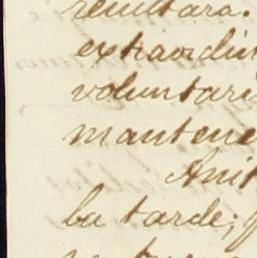 resultara.
extraordin
voluntari
mantene
Anit
ba tarde;